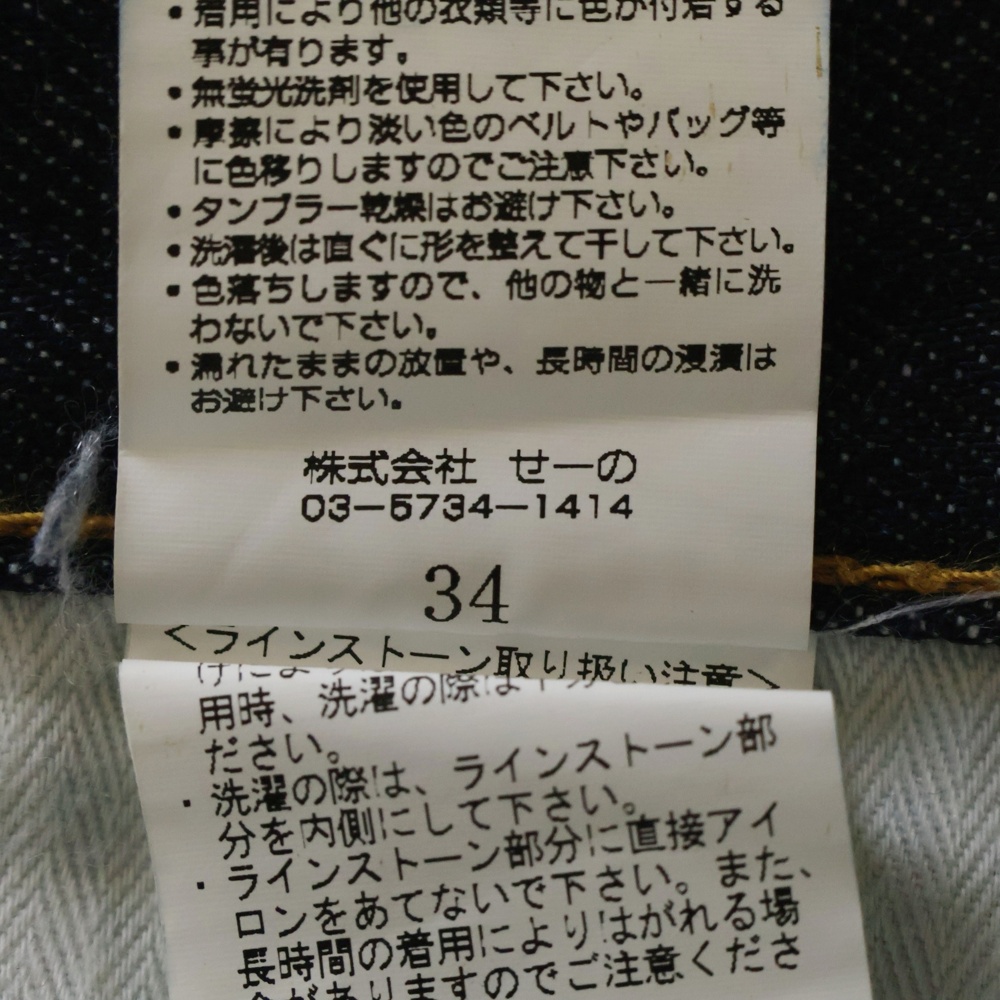 ・着用により他の衣類等に色が付着する
事が有ります。
・無蛍光洗剤を使用して下さい。
・摩擦により淡い色のベルトやバッグ等
に色移りしますのでご注意下さい。
・タンブラー乾燥はお避け下さい。
・洗濯後は直ぐに形を整えて干して下さい。
・色落ちしますので、他の物と一緒に洗
わないで下さい。
・濡れたままの放置や、長時間の浸漬は
お避け下さい。
株式会社 せーの
03-5734-1414
34
<ラインストーン取り扱い注意>
用時、洗濯の際は
ださい。
・洗濯の際は、ラインストーン部
分を内側にして下さい。
・ラインストーン部分に直接アイ
ロンをあてないで下さい。また、
長時間の着用によりはがれる場
合がありますのでご注意くださ